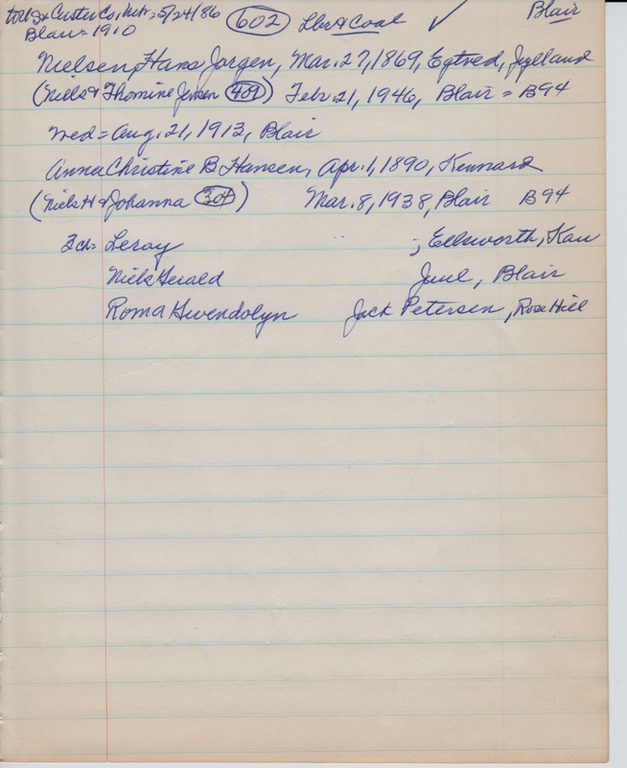 to US & Custer Co, Nebr = 5/24/86 602 Lbr & Coal ✓ Blair
Blair = 1910
Nielsen, Hans Jorgen, Mar. 27, 1869, Egtved, Jylland
(Niels & Thomine Jensen 409) Febr. 21, 1946, Blair = B94
Wed = Aug. 21, 1913, Blair
Anna Christine B Hansen, Apr. 1, 1890, Kennard
(Niels H & Johanna 304) Mar. 8, 1938, Blair B94
3 ch: Leroy ; Ellsworth, Kan
Niels Gerald Juul, Blair
Roma Gwendolyn Jack Petersen, Rose Hill